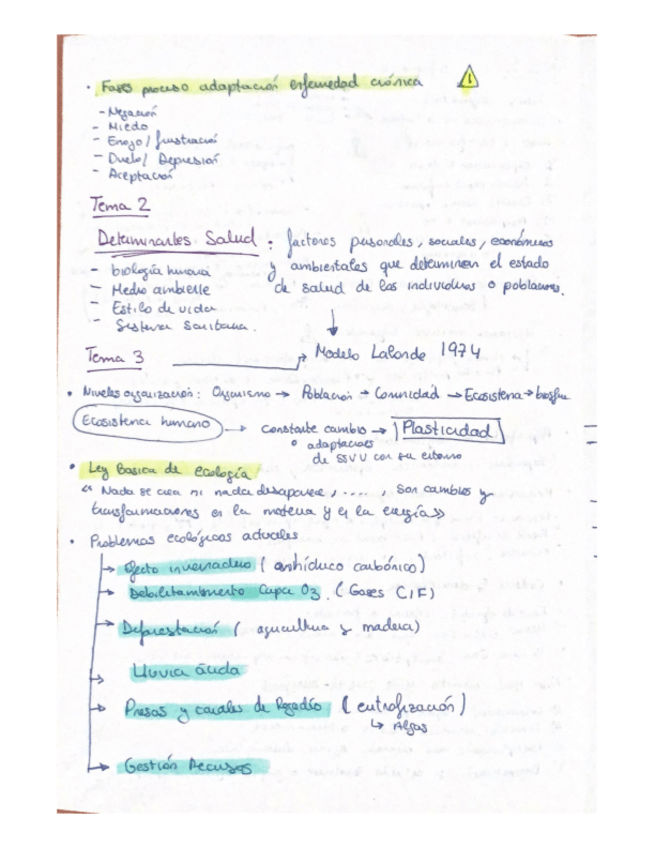 • Fases proceso adaptación enfermedad crónica
- Negación
- Miedo
- Enojo / frustración
- Duelo / Depresión
- Aceptación
Tema 2
Determinantes Salud : factores personales, sociales, económicos
y ambientales que determinan el estado
de salud de los individuos o poblaciones.
- biología humana
- Medio ambiente
- Estilo de vida
- Sistema Sanitario.
Tema 3 → Modelo Lalonde 1974
• Niveles organización: Organismo → Población → Comunidad → Ecosistema → biosfera
Ecosistema humano → constante cambio → Plasticidad
° adaptaciones
de SSVV con su entorno
• Ley Basica de ecología:
"Nada se crea ni nada desaparece, ...., son cambios y
transformaciones en la materia y en la energía»
• Problemas ecológicos actuales
→ Efecto invernadero (anhídrico carbónico)
→ Debilitamiento Capa O3. (Gases CIF)
→ Deforestación ( agricultura y madera)
→ Lluvia ácida
→ Presas y canales de Regadío (eutrofización)
↳ Algas
→ Gestión Recursos